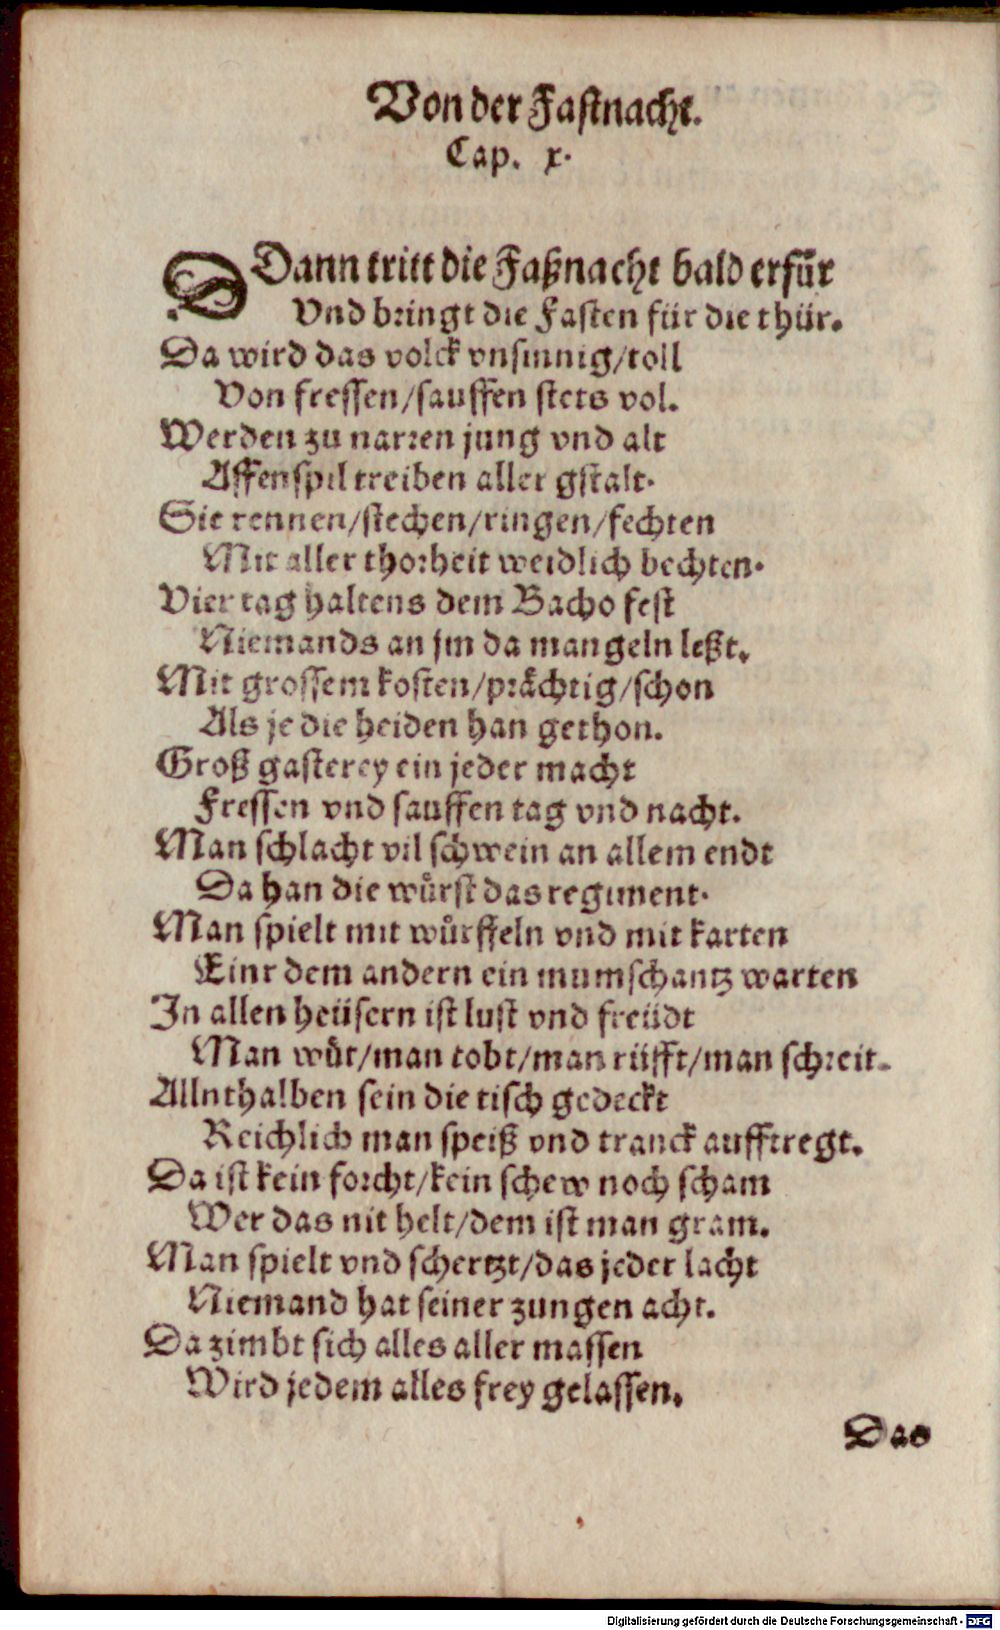 Von der Fastnacht.
Cap. x.
SDann tritt die Faßnacht bald erfür
Vnd bringt die Fasten für die thür.
Da wird das volck vnsinnig/toll
Von fressen/sauffen stets vol.
Werden zu narren jung vnd alt
Affenspil treiben aller gstalt.
Sie rennen/stechen/ringen/fechten
Mit aller thorheit weidlich bechten.
Vier tag haltens dem Bacho fest
Niemands an jm da mangeln leßt.
Mit grossem kosten/prächtig/schon
Als je die heiden han gethon.
Groß gasterey ein jeder macht
Fressen vnd sauffen tag vnd nacht.
Man schlacht vil schwein an allem endt
Da han die wuͤrst das regiment.
Man spielt mit wuͤrffeln vnd mit karten
Einr dem andern ein mumschantz warten
In allen heüsern ist lust vnd freüdt
Man wuͤt/man tobt/man rüfft/man schreit.
Allnthalben sein die tisch gedeckt
Reichlich man speiß vnd tranck aufftregt.
Da ist kein forcht/kein schew noch scham
Wer das nit helt/dem ist man gram.
Man spielt vnd schertzt/das jeder lacht
Niemand hat seiner zungen acht.
Da zimbt sich alles aller massen
Wird jedem alles frey gelassen.
Das
Digitalisierung gefördert durch die Deutsche Forschungsgemeinschaft - DFG